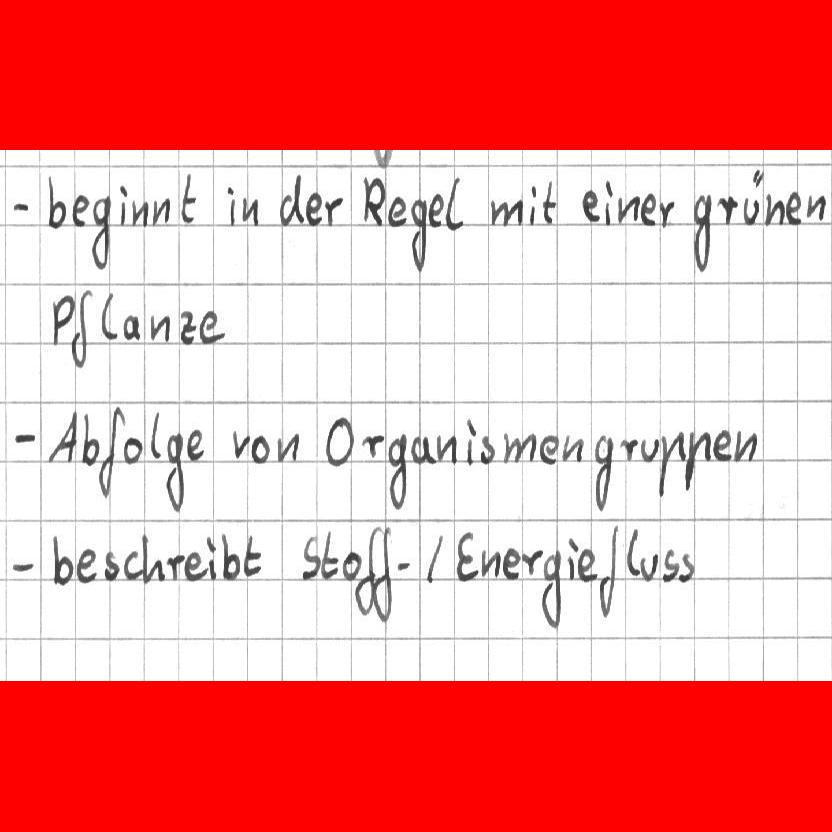 - beginnt in der Regel mit einer grünen
Pflanze
- Abfolge von Organismengruppen
- beschreibt Stoff-/Energiefluss